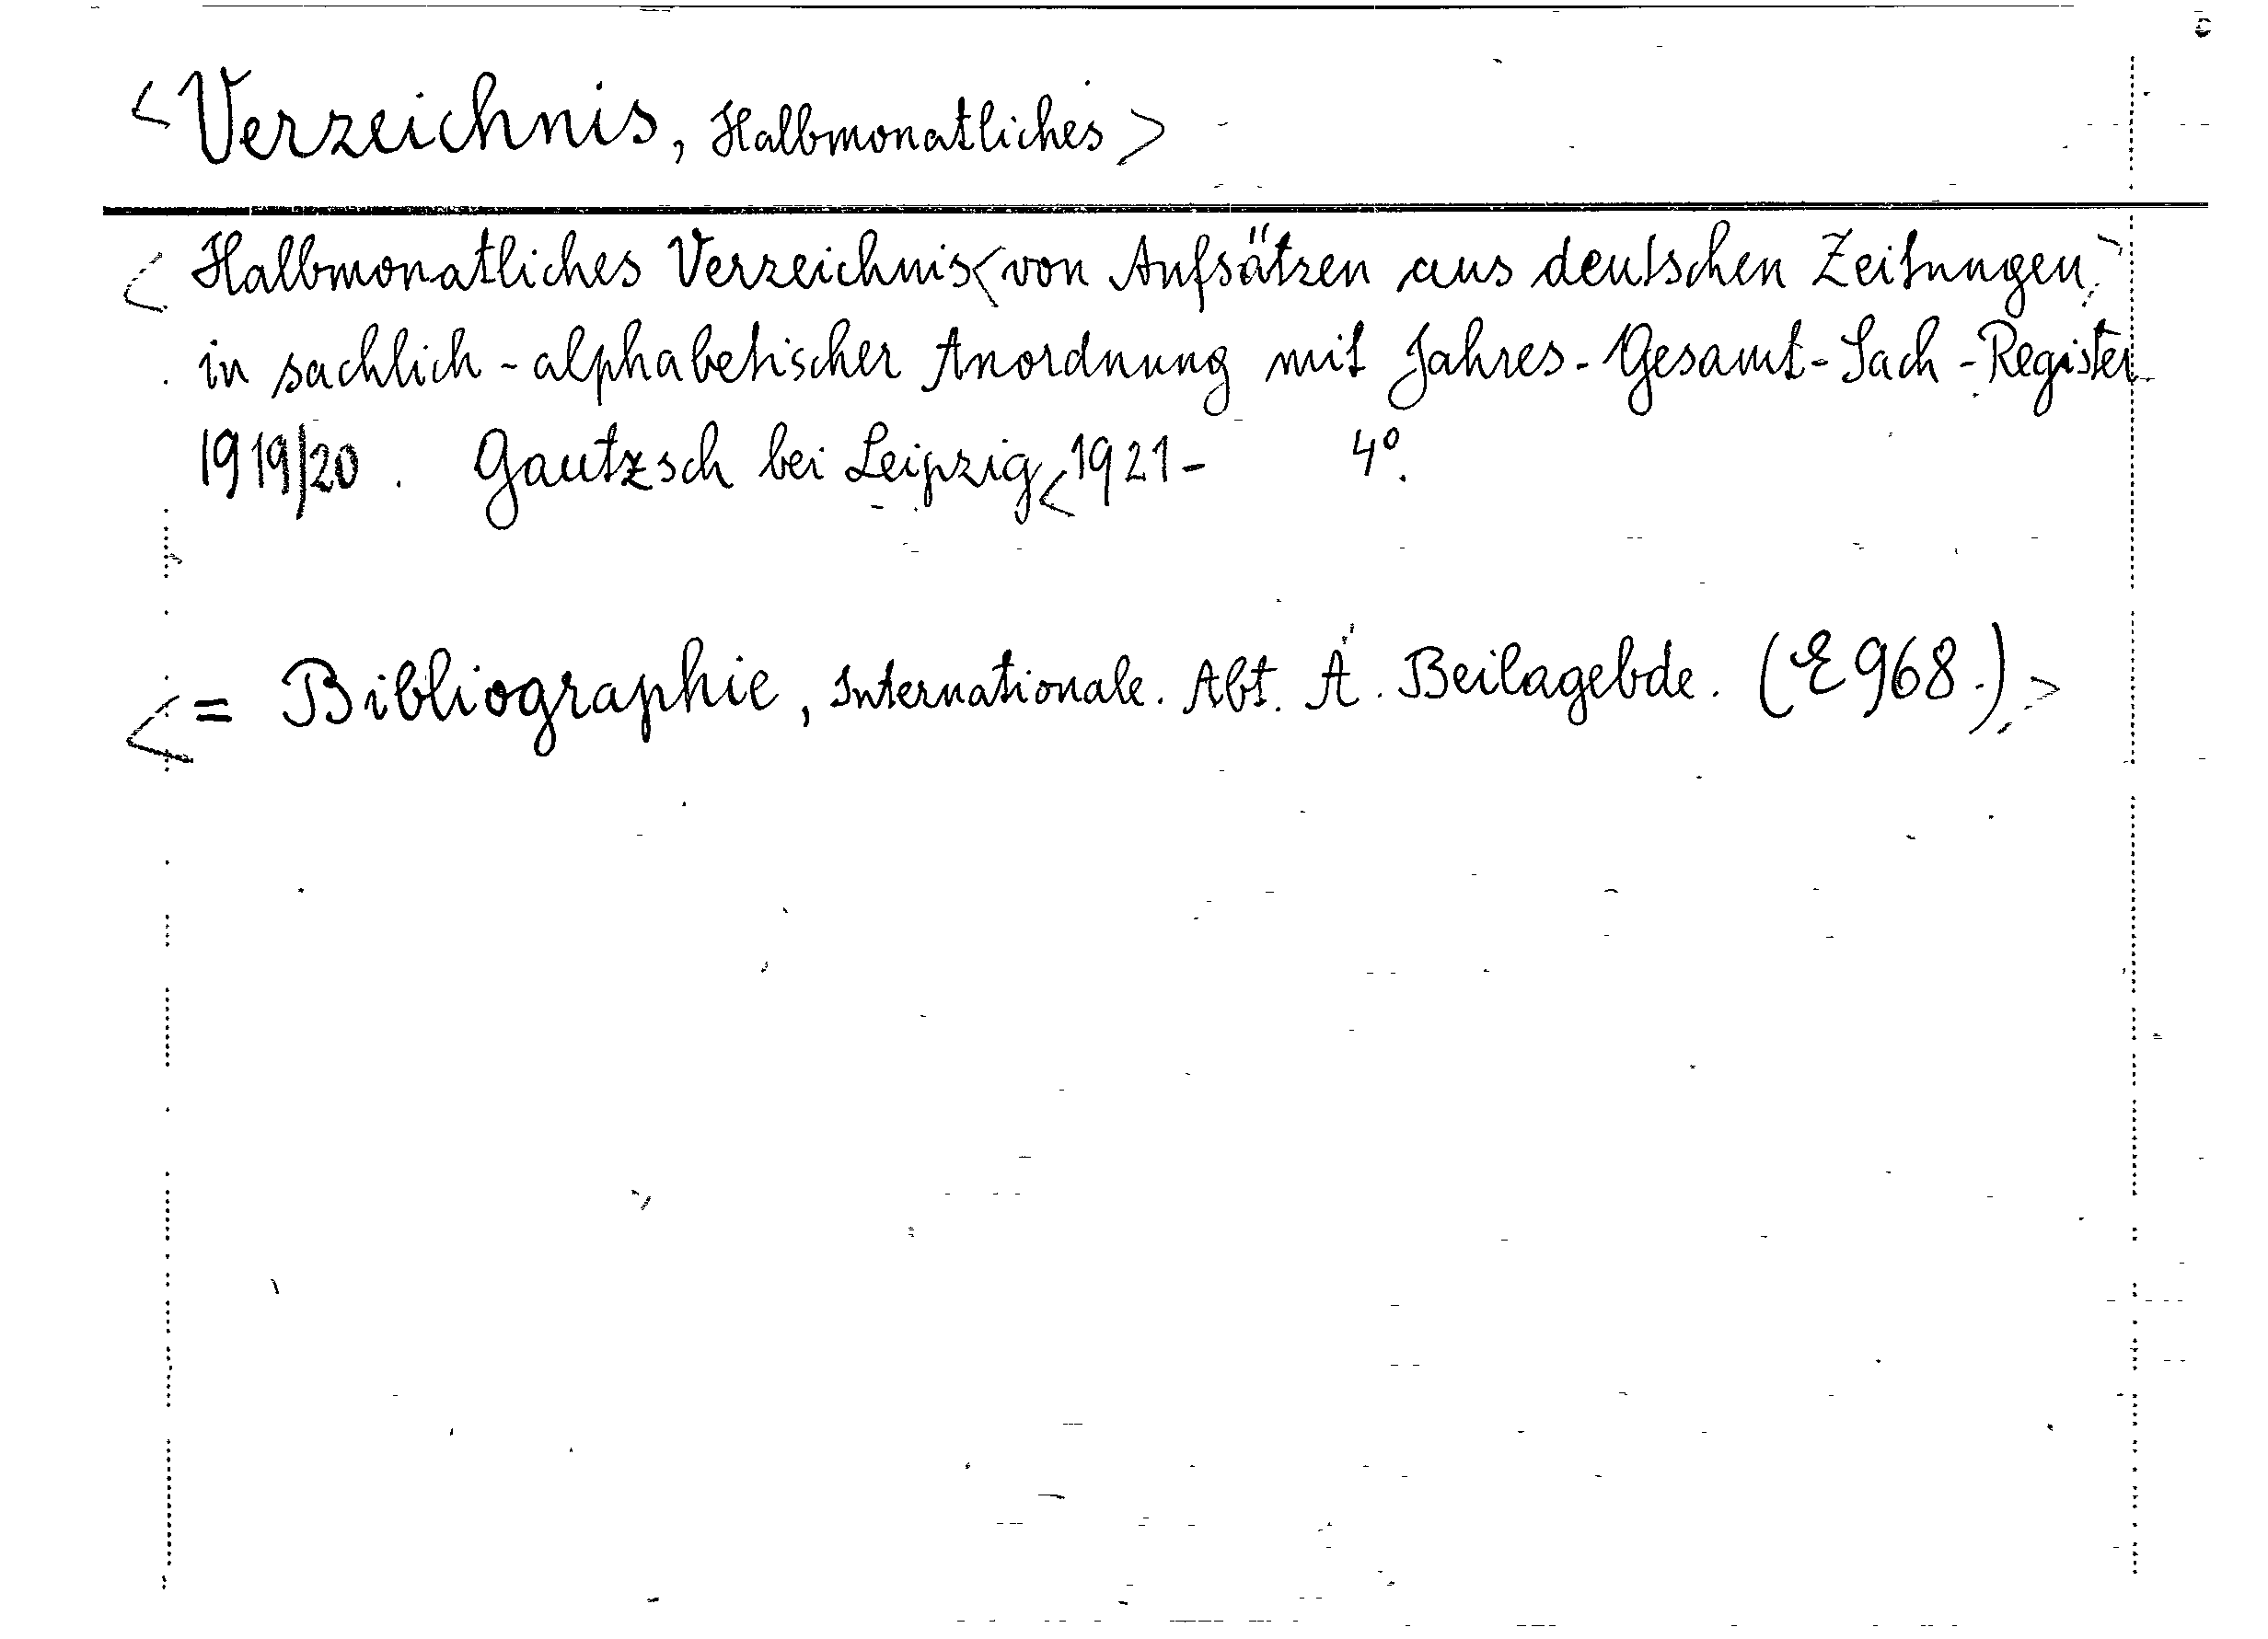 <Verzeichnis, Halbmonatliches>
<Halbmonatliches Verzeichnis<von Aufsätzen aus deutschen Zeitungen>
in sachlich-alphabetischer Anordnung mit Jahres-Gesamt-Sach-Register
1919/20. Gautzsch bei Leipzig<1921- 4°.
<= Bibliographie, Internationale. Abt. A. Beilagebde. (E 968.)>